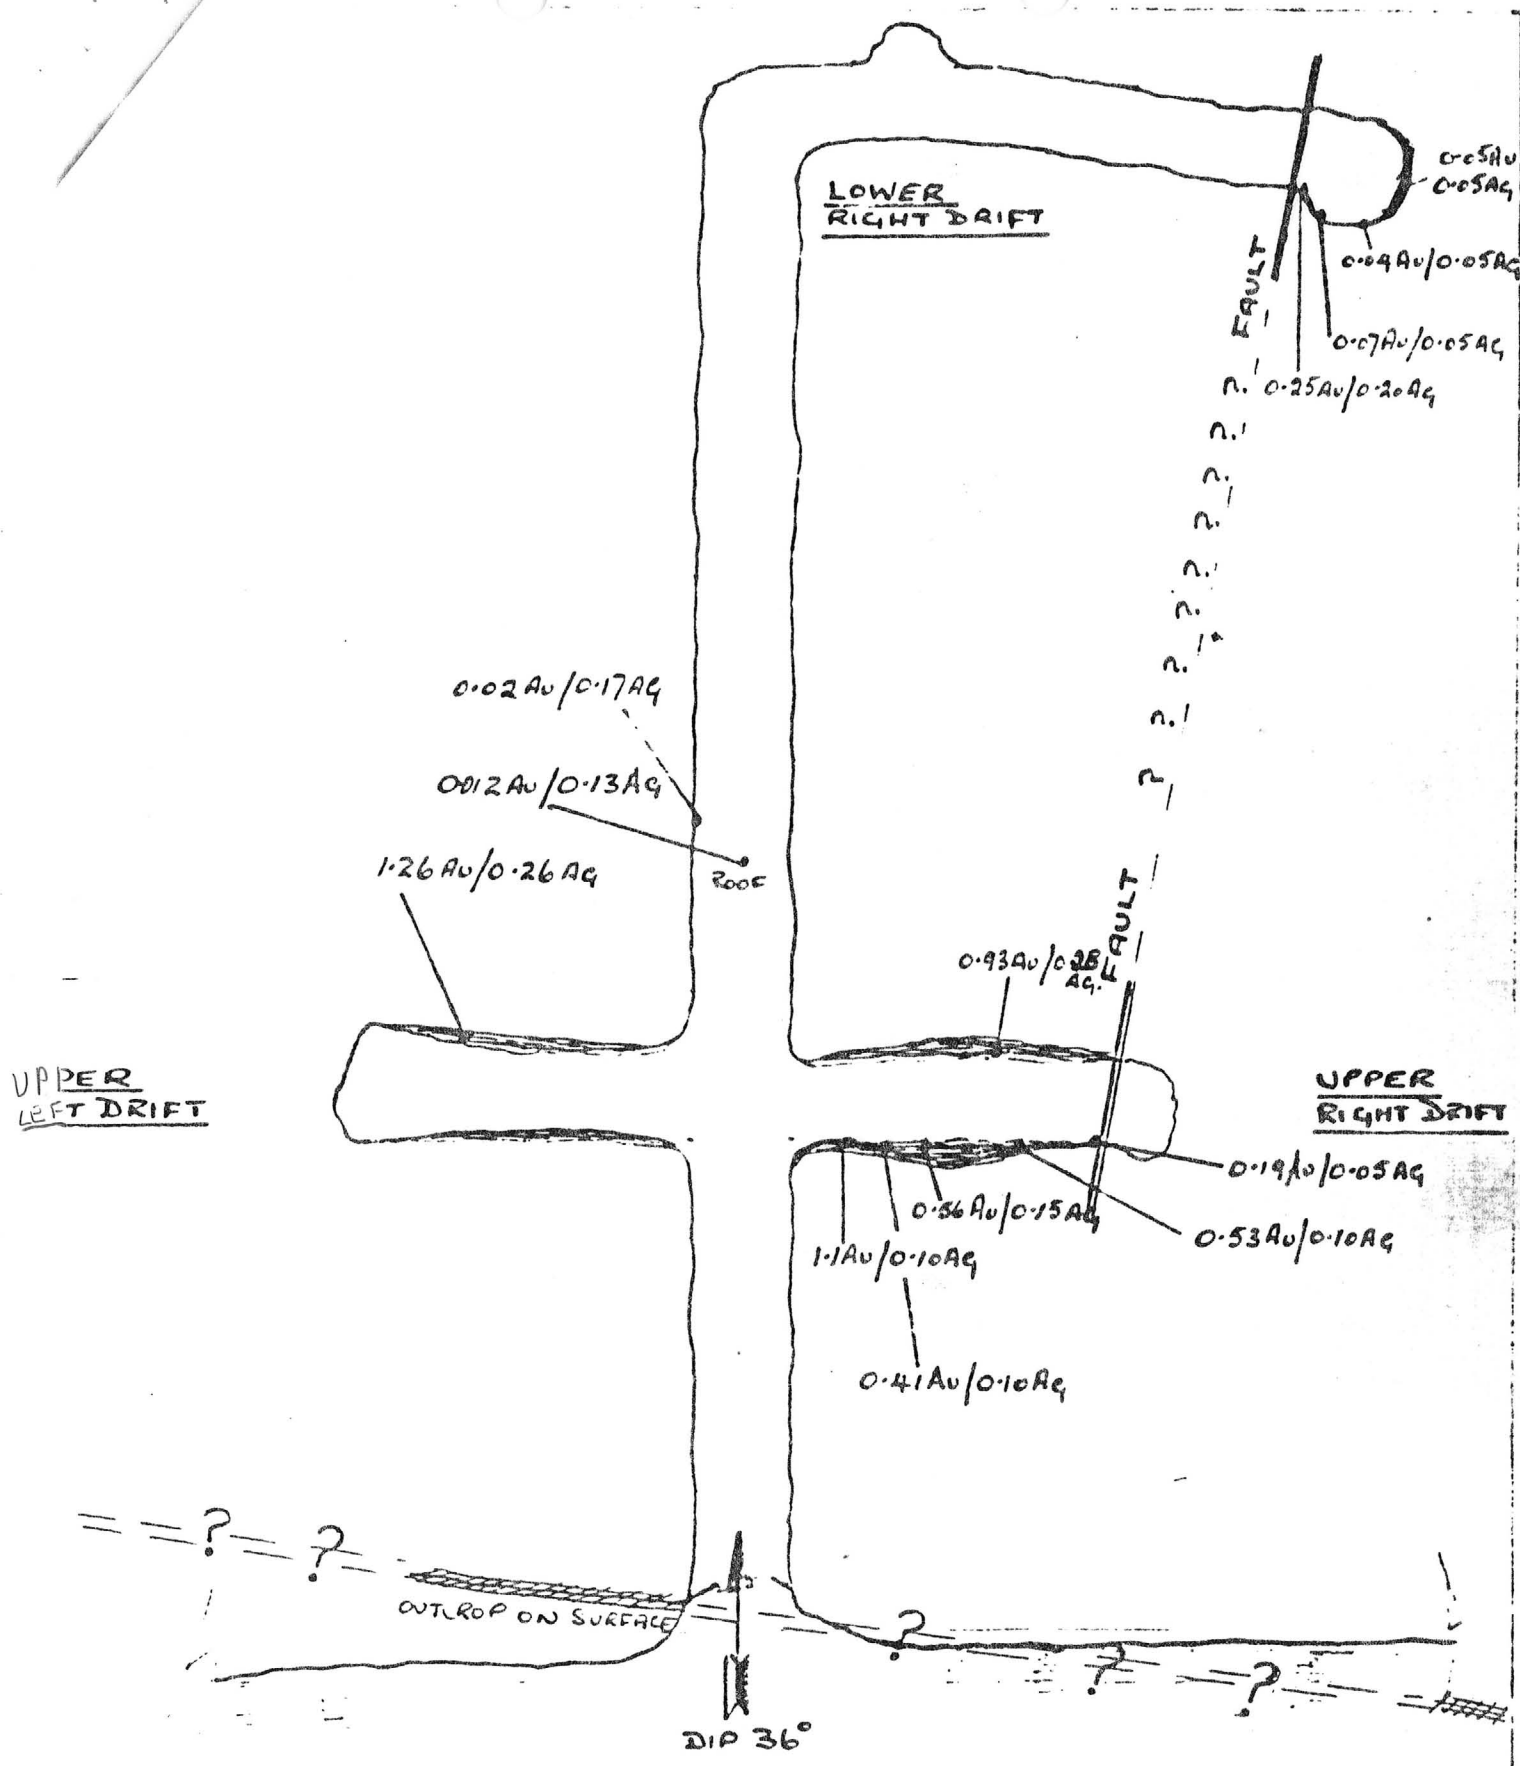 0.05Au
0.05AG
LOWER
RIGHT DRIFT
0.04Au/0.05AG
FAULT
0.07Au/0.05AG
0.25Au/0.20AG
?
?
?
?
?
?
?
?
?
0.02Au/0.17AG
0.012Au/0.13AG
1.26Au/0.26AG
ROOF
FAULT
0.93Au/
AG.
UPPER
LEFT DRIFT
UPPER
RIGHT DRIFT
0.19Au/0.05AG
0.56Au/0.15AG
0.53Au/0.10AG
1.1Au/0.10AG
0.41Au/0.10AG
? ?
OUTCROP ON SURFACE
? ? ?
DIP 36°